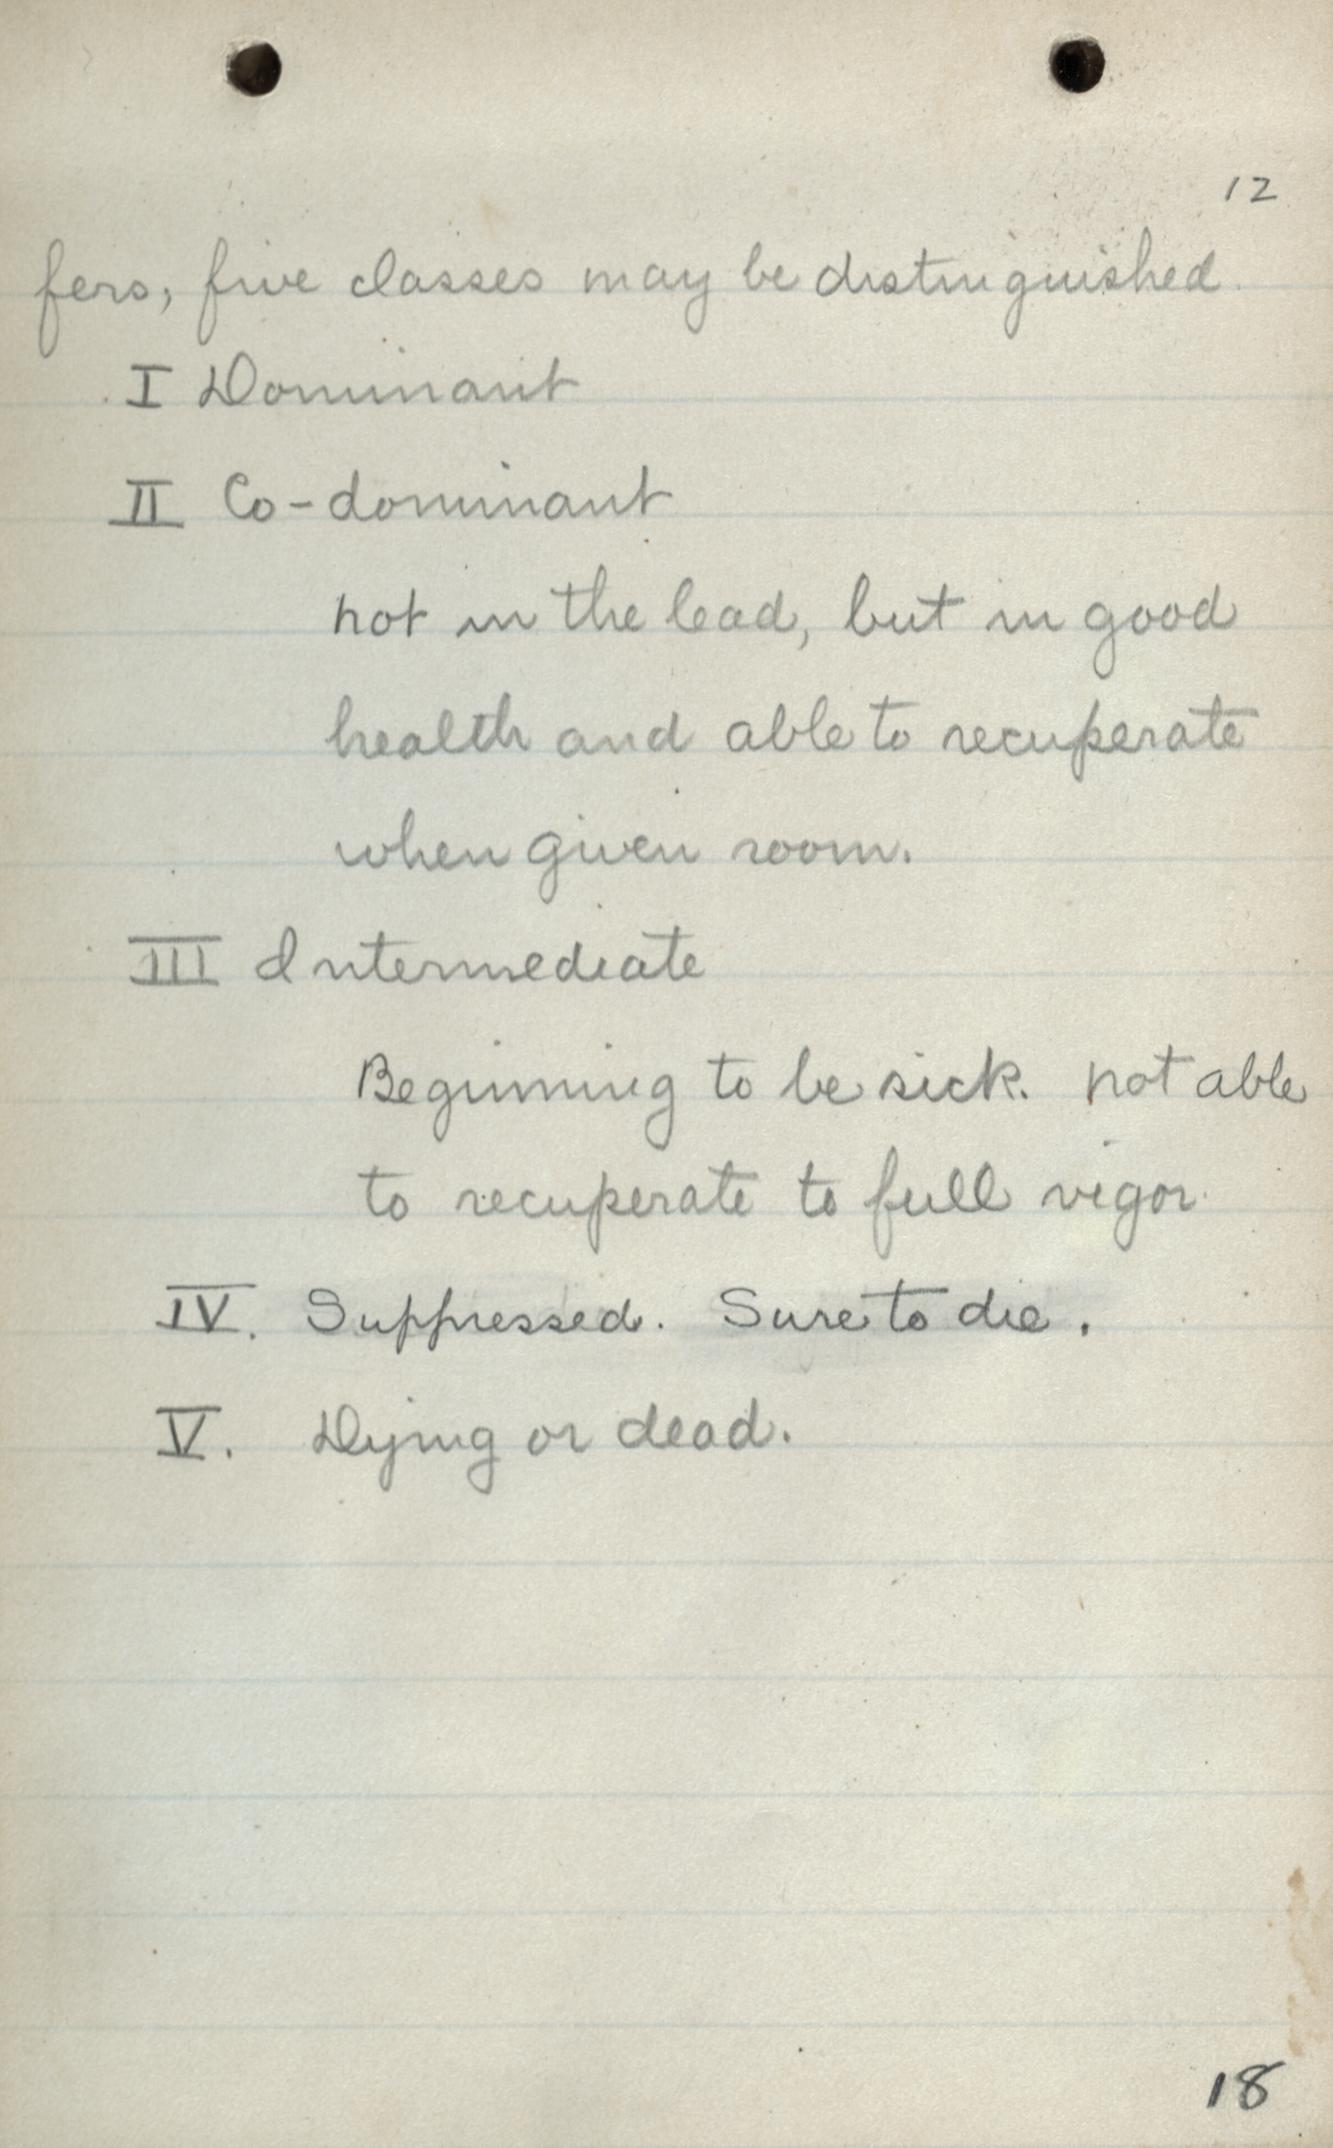 12
fers, five classes may be distinguished
I Dominant
II Co-dominant
not in the lead, but in good
health and able to recuperate
when given room.
III Intermediate
Beginning to be sick. not able
to recuperate to full vigor.
IV. Suppressed. Sure to die.
V. Dying or dead.
18